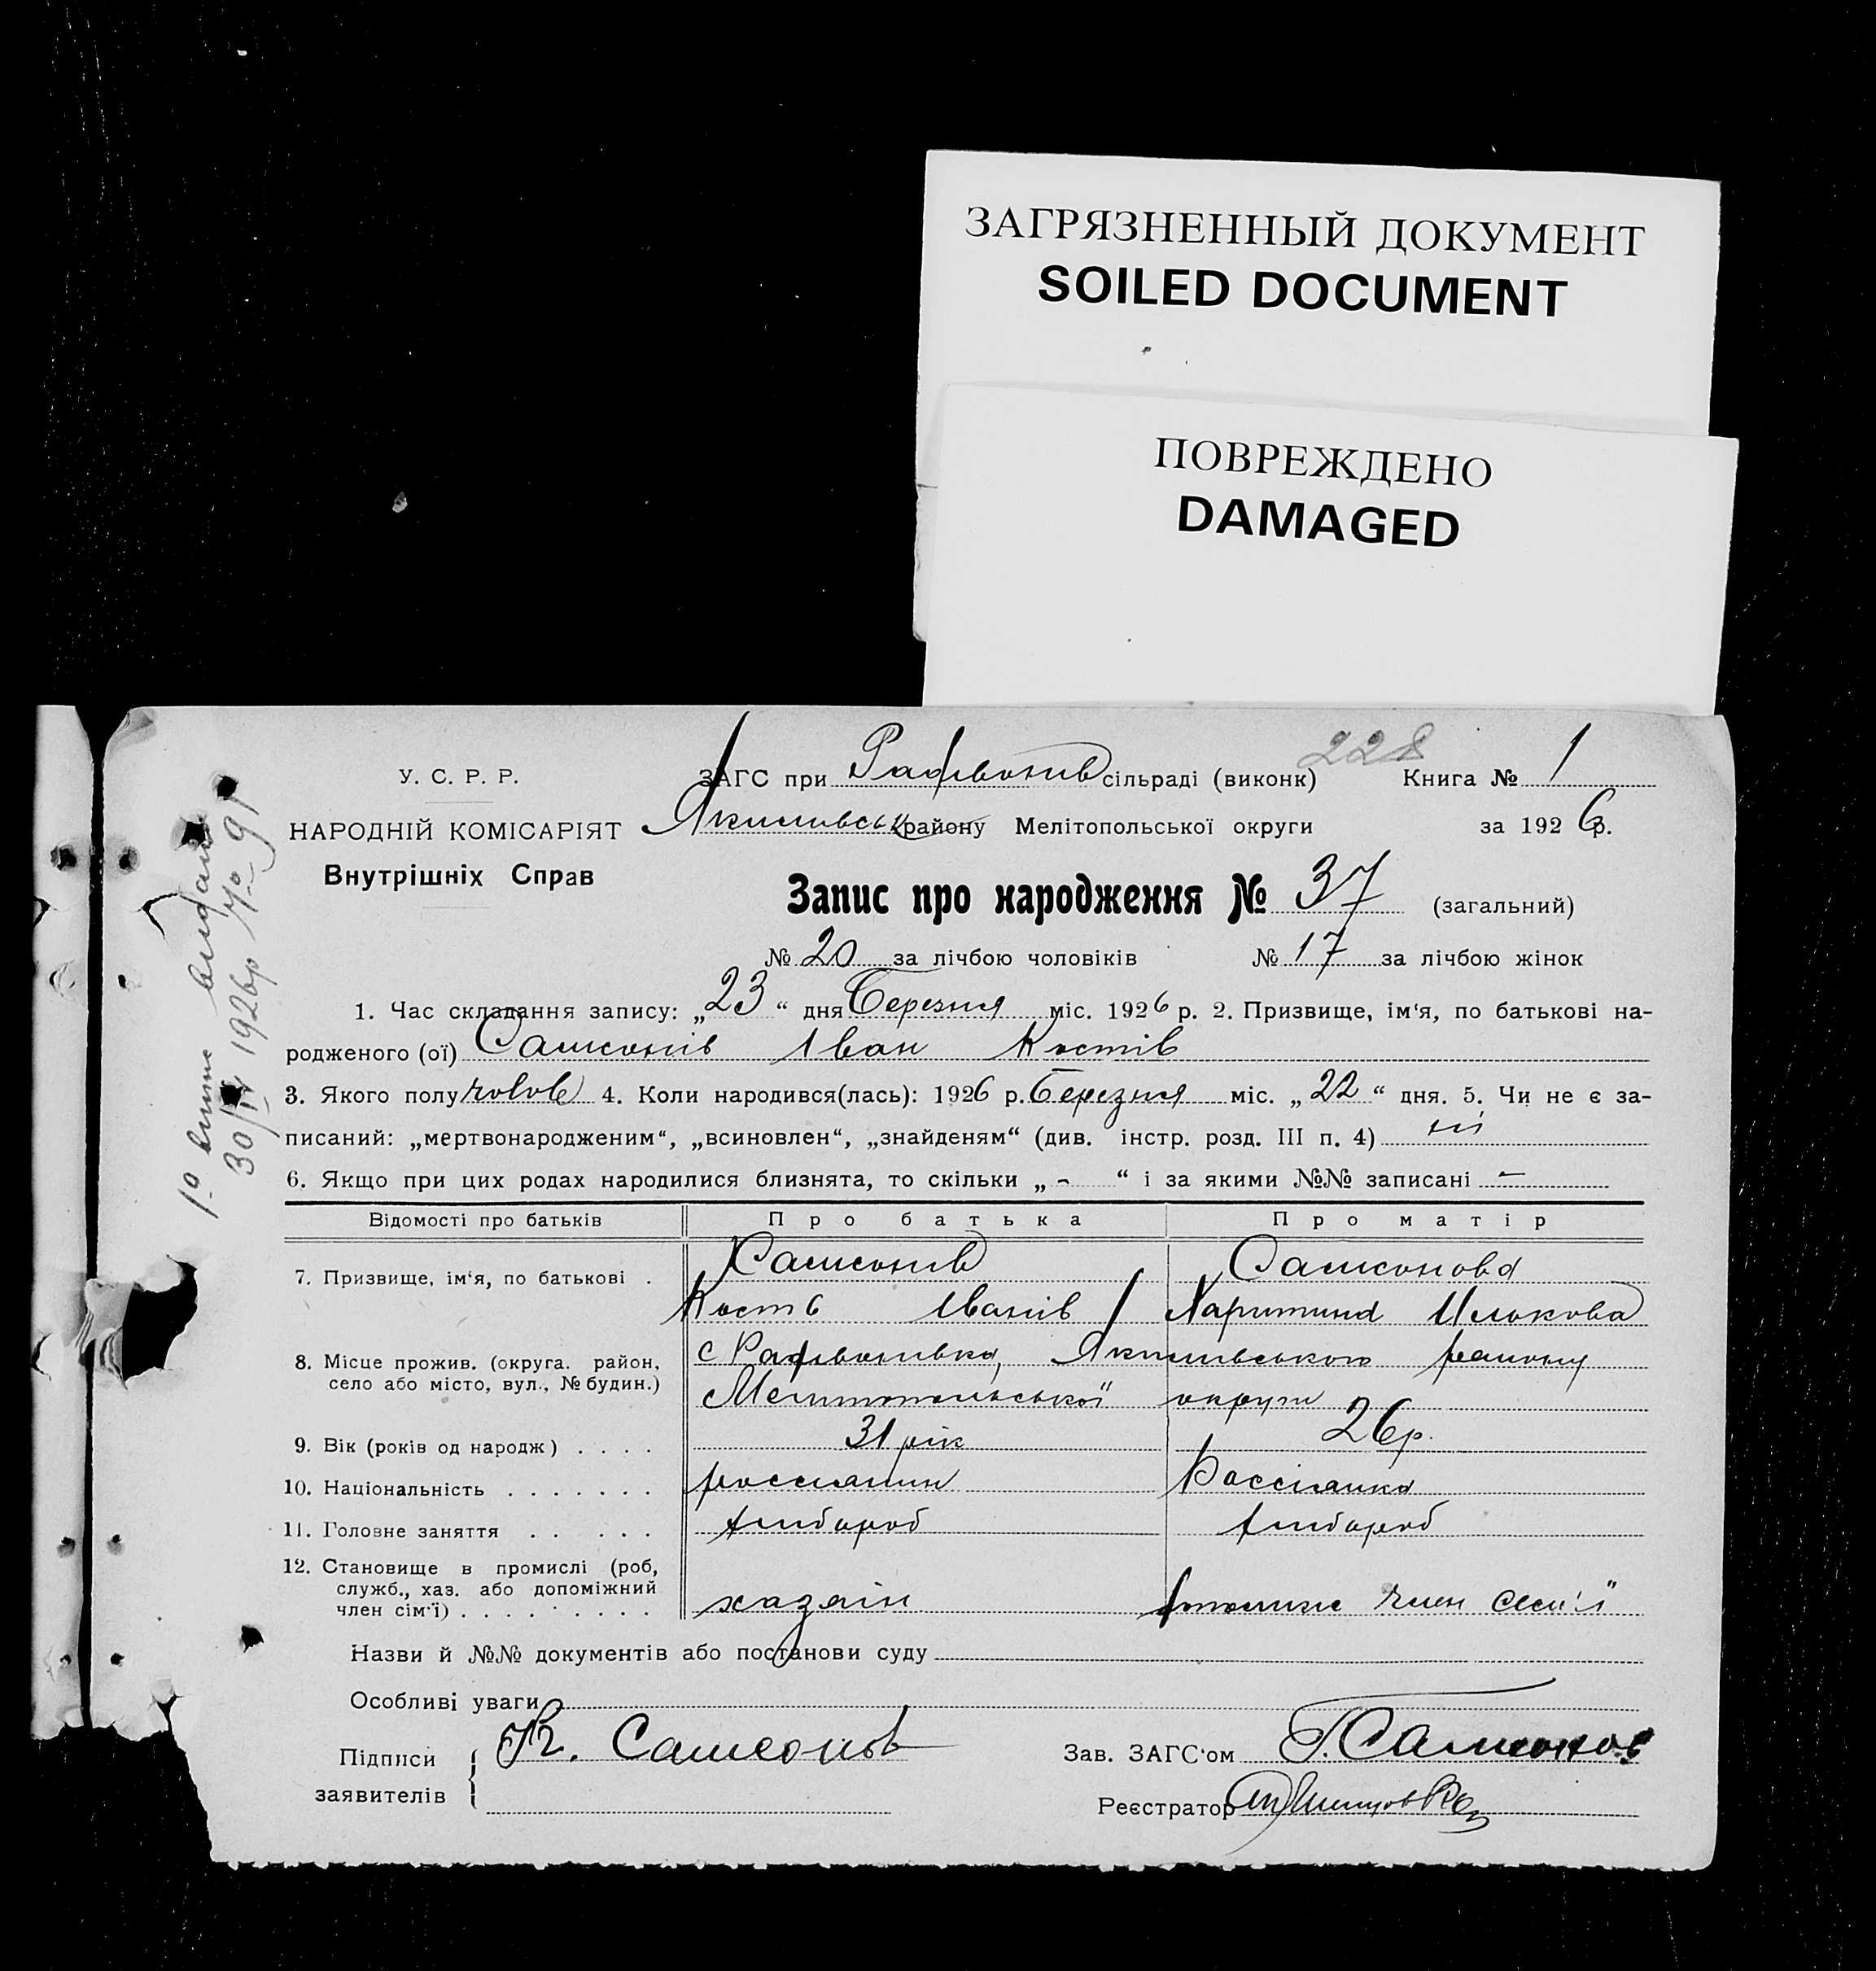 ЗАГРЯЗНЕННЫЙ ДОКУМЕНТ
SOILED DOCUMENT
ПОВРЕЖДЕНО
DAMAGED
228
У. С. Р. Р.
НАРОДНІЙ КОМІСАРІЯТ
Внутрішніх Справ
ЗАГС при сільраді (виконк) Книга № 1
району Мелітопольської округи за 1926 р.
Запис про народження № 37 (загальний)
№ 20 за лічбою чоловіків № 17 за лічбою жінок
1. Час складання запису: „23“ дня Березня міс. 1926 р. 2. Призвище, ім‘я, по батькові на-
родженого (ої) Самсонів Іван Костів
3. Якого полу чолов 4. Коли народився(лась): 1926 р. Березня міс. „22“ дня. 5. Чи не є за-
писаний: „мертвонародженим“, „всиновлен“, „знайденям“ (див. інстр. розд. III п. 4) ні
6. Якщо при цих родах народилися близнята, то скільки „ - “ і за якими №№ записані -
Відомості про батьків Про батька Про матір
7. Призвище, ім‘я, по батькові . Самсонів Самсонова
Кость Іванів Харитина Ількова
8. Місце прожив. (округа. район,
село або місто, вул., № будин.)
с Якимівського району
Мелітопольської округи
9. Вік (років од народж) . . . . 31 рік 26 р.
10. Національність . . . . . . . россиянин Россіянка
11. Головне заняття . . . . . хлібороб хлібороб
12. Становище в промислі (роб,
служб., хаз. або допоміжний
член сім‘ї) . . . . . . . . . хазяїн член сем'ї
Назви й №№ документів або постанови суду
Особливі уваги
Підписи
заявителів
К. Самсонов
Зав. ЗАГС‘ом Г. Самсонов
Реєстратор
1º видано
30/IV 1926р № 91